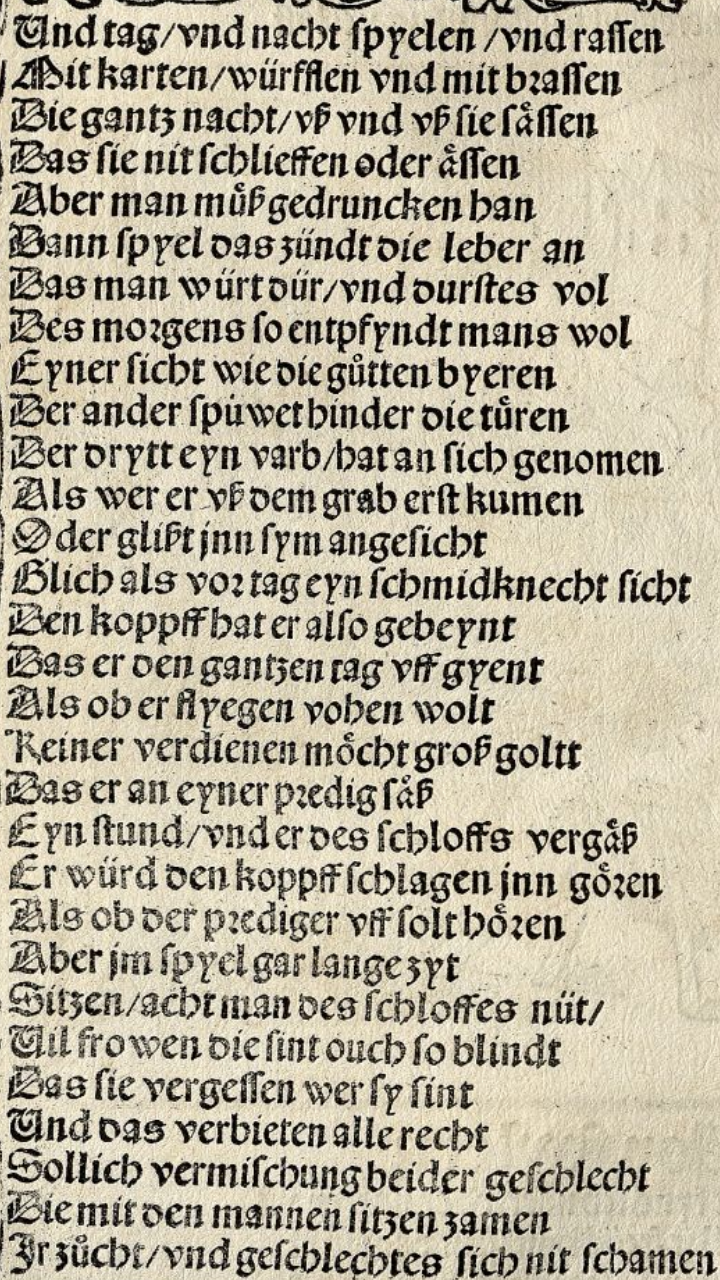 Und tag/vnd nacht ſpyelen /vnd raſſen
Mit karten/würfflen vnd mit braſſen
Die gantz nacht/vß vnd vß ſie ſaͤſſen
Das ſie nit ſchlieffen oder aͤſſen
Aber man muͤß gedruncken han
Dann ſpyel das zündt die leber an
Das man würt dür/vnd durſtes vol
Des morgens ſo entpfyndt mans wol
Eyner ſicht wie die guͤtten byeren
Der ander ſpüwet hinder die tuͤren
Der drytt eyn varb/hat an ſich genomen
Als wer er vß dem grab erſt kumen
Oder glißt jnn ſym angeſicht
Glich als vor tag eyn ſchmidknecht ſicht
Den koppff hat er alſo gebeynt
Das er den gantzen tag vff gyent
Als ob er flyegen vohen wolt
Keiner verdienen moͤcht groß goltt
Das er an eyner predig ſaͤß
Eyn ſtund/vnd er des ſchloffs vergaͤß
Er würd den koppff ſchlagen jnn goͤren
Als ob der prediger vff ſolt hoͤren
Aber jm ſpyel gar lange zyt
Sitzen/acht man des ſchloffes nüt/
Vil frowen die ſint ouch ſo blindt
Das ſie vergeſſen wer ſy ſint
Und das verbieten alle recht
Sollich vermiſchung beider geſchlecht
Die mit den mannen ſitzen zamen
Jr zuͤcht/vnd geſchlechtes ſich nit ſchamen